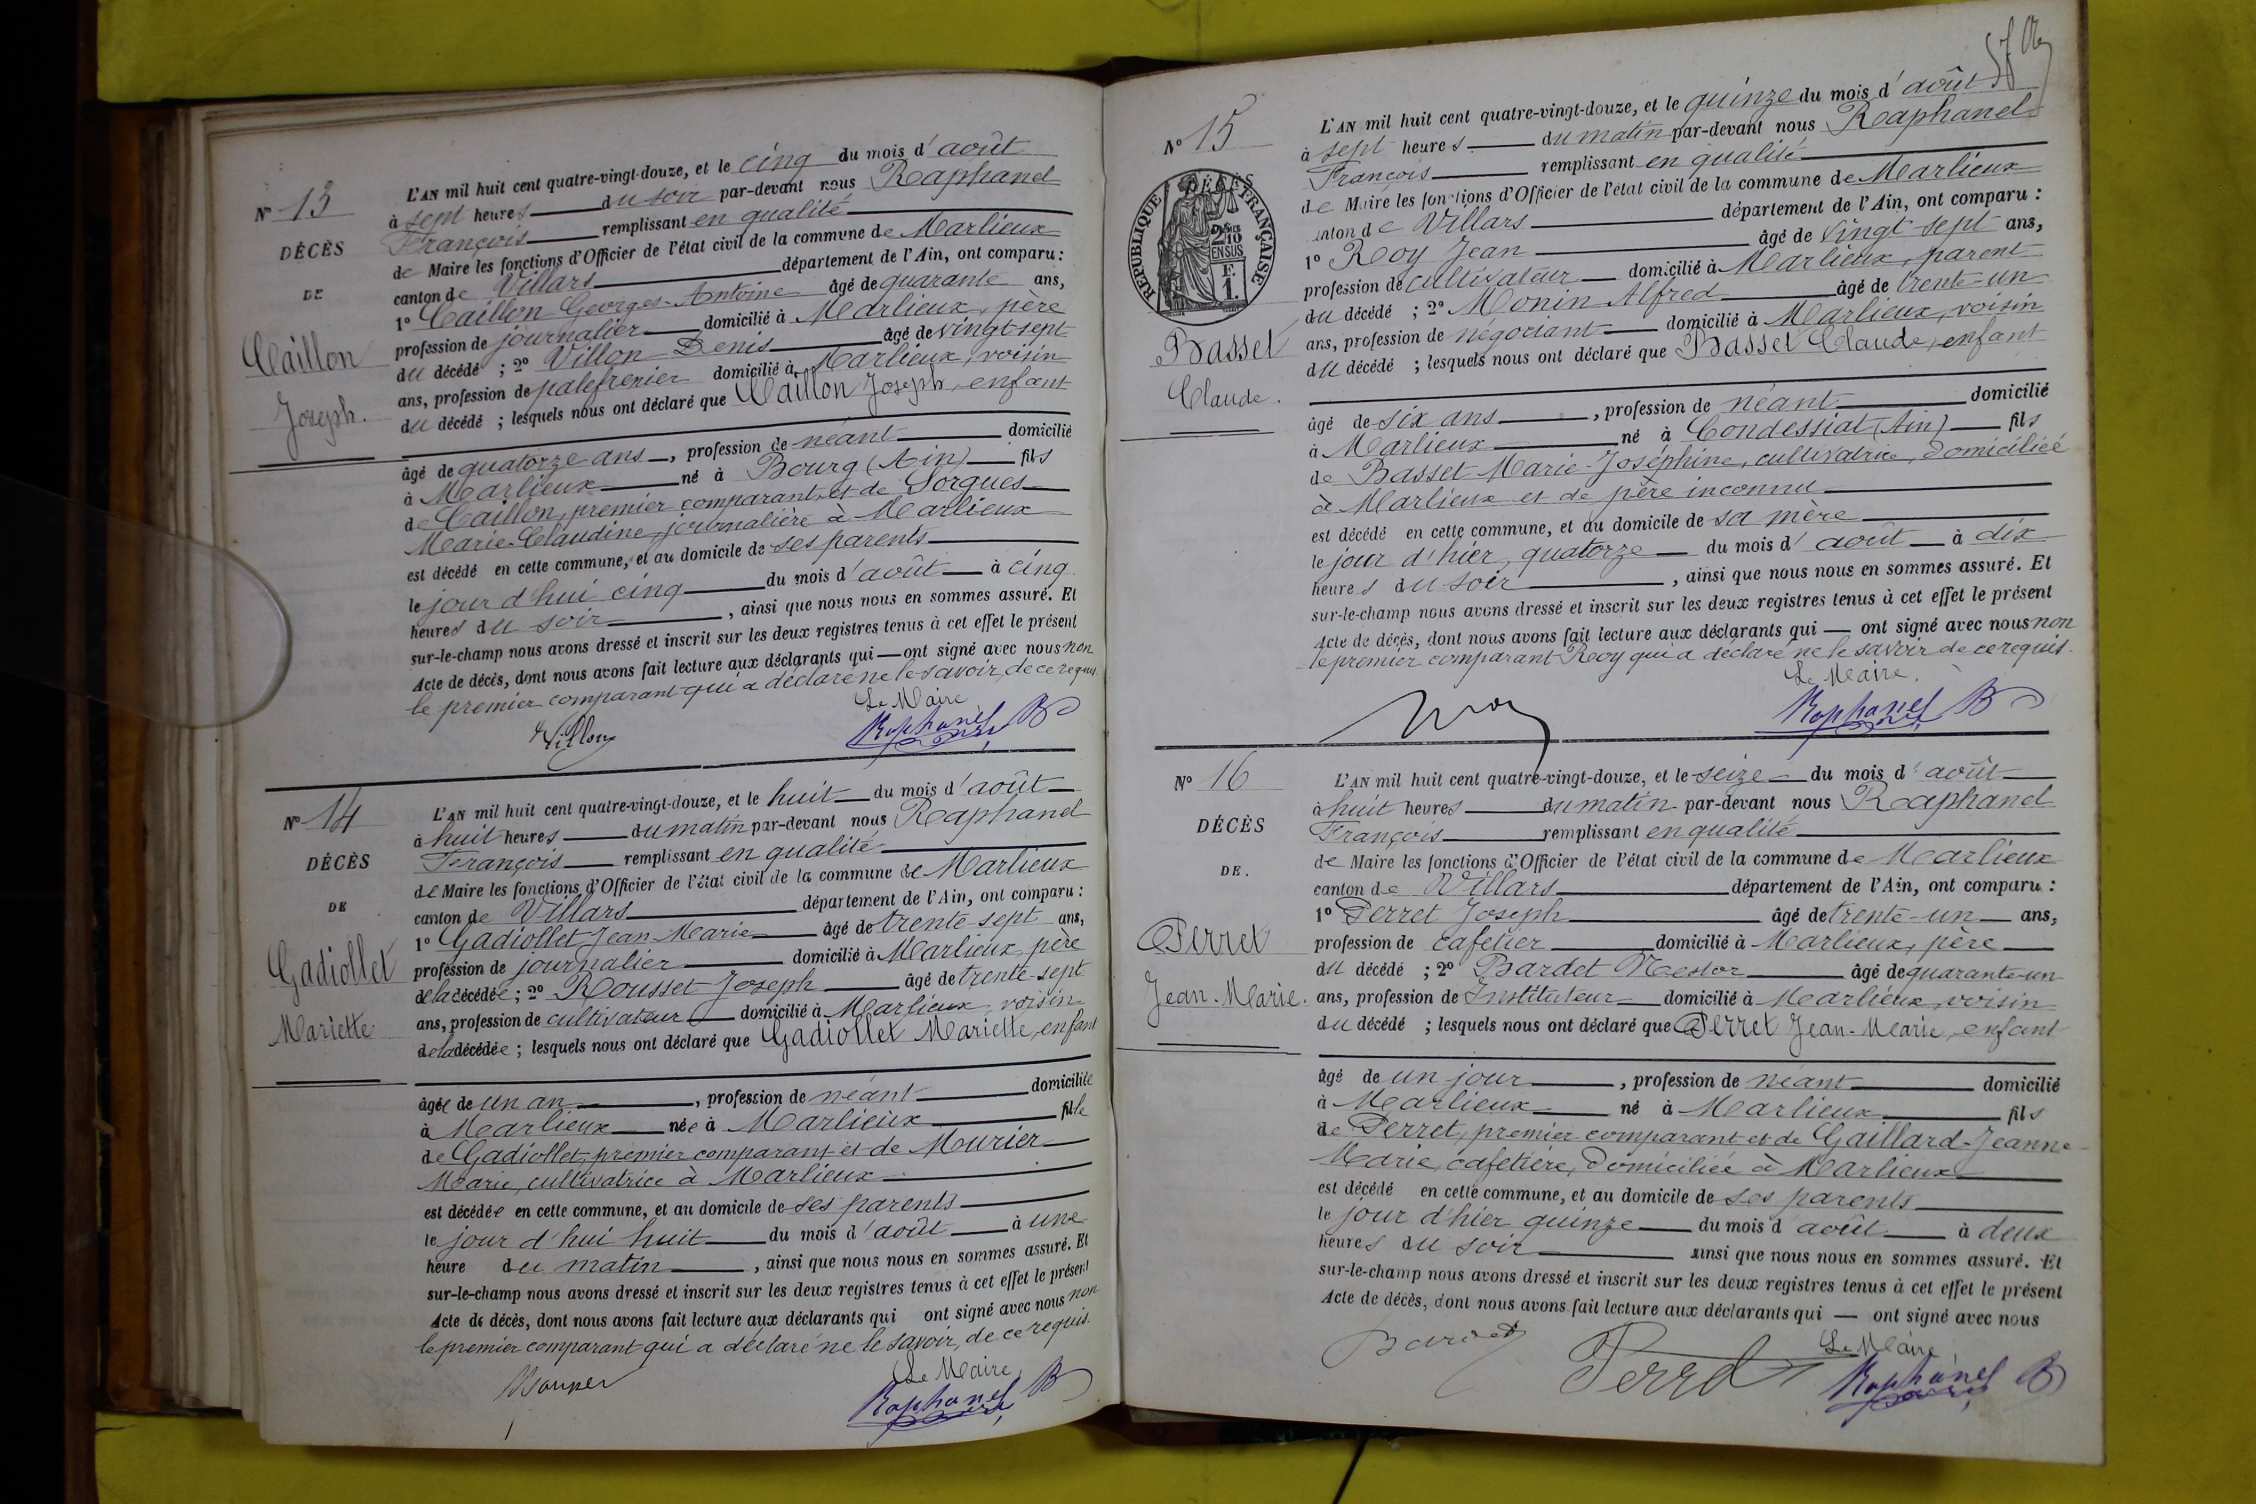 N° 13
DÉCÈS
DE
Caillon
Joseph.
L'AN mil huit cent quatre-vingt-douze, et le cinq du mois d'août
à sept heures du soir par-devant nous Raphanel
François remplissant en qualité
de Maire les fonctions d'Officier de l'état civil de la commune de Marlieux
canton de Villars département de l'Ain, ont comparu :
1° Caillon Georges-Antoine âgé de quarante ans,
profession de journalier domicilié à Marlieux, père
du décédé ; 2° Villon Denis âgé de vingt-sept
ans, profession de palefrenier domicilié à Marlieux, voisin
du décédé ; lesquels nous ont déclaré que Caillon Joseph, enfant
âgé de quatorze ans, profession de néant domicilié
à Marlieux né à Bourg (Ain) fils
de Caillon, premier comparant et de Sorgues
Marie-Claudine, journalière à Marlieux
est décédé en cette commune, et au domicile de ses parents
le jour d'hui cinq du mois d'août à cinq
heures du soir, ainsi que nous nous en sommes assuré. Et
sur-le-champ nous avons dressé et inscrit sur les deux registres tenus à cet effet le présent
Acte de décès, dont nous avons fait lecture aux déclarants qui — ont signé avec nous non
le premier comparant qui a déclaré ne le savoir, de ce requis.
Le Maire
Villon
Raphanel
N° 14
DÉCÈS
DE
Gadiollet
Mariette
L'AN mil huit cent quatre-vingt-douze, et le huit du mois d'août
à huit heures du matin par-devant nous Raphanel
François remplissant en qualité
de Maire les fonctions d'Officier de l'état civil de la commune de Marlieux
canton de Villars département de l'Ain, ont comparu :
1° Gadiollet Jean-Marie âgé de trente-sept ans,
profession de journalier domicilié à Marlieux, père
de la décédée ; 2° Rousset Joseph âgé de trente-sept
ans, profession de cultivateur domicilié à Marlieux, voisin
de la décédée ; lesquels nous ont déclaré que Gadiollet Mariette, enfant
âgée de un an, profession de néant domiciliée
à Marlieux née à Marlieux fille
de Gadiollet, premier comparant et de Mourier
Marie, cultivatrice à Marlieux
est décédée en cette commune, et au domicile de ses parents
le jour d'hui huit du mois d'août à une
heure du matin, ainsi que nous nous en sommes assuré. Et
sur-le-champ nous avons dressé et inscrit sur les deux registres tenus à cet effet le présent
Acte de décès, dont nous avons fait lecture aux déclarants qui ont signé avec nous non
le premier comparant qui a déclaré ne le savoir, de ce requis.
Le Maire
Raphanel
N° 15
DÉCÈS
RÉPUBLIQUE FRANÇAISE
2 10 EN SUS
F.
1.
Basset
Claude.
L'AN mil huit cent quatre-vingt-douze, et le quinze du mois d'août
à sept heures du matin par-devant nous Raphanel
François remplissant en qualité
de Maire les fonctions d'Officier de l'état civil de la commune de Marlieux
canton de Villars département de l'Ain, ont comparu :
1° Roy Jean âgé de vingt-sept ans,
profession de cultivateur domicilié à Marlieux, parent
du décédé ; 2° Monin Alfred âgé de trente-un
ans, profession de négociant domicilié à Marlieux, voisin
du décédé ; lesquels nous ont déclaré que Basset Claude, enfant
âgé de six ans, profession de néant domicilié
à Marlieux né à Condessiat (Ain) fils
de Basset Marie-Joséphine, cultivatrice, domiciliée
à Marlieux et de père inconnu
est décédé en cette commune, et au domicile de sa mère
le jour d'hier, quatorze du mois d'août à dix
heures du soir, ainsi que nous nous en sommes assuré. Et
sur-le-champ nous avons dressé et inscrit sur les deux registres tenus à cet effet le présent
Acte de décès, dont nous avons fait lecture aux déclarants qui — ont signé avec nous non
le premier comparant Roy qui a déclaré ne le savoir de ce requis.
Le Maire.
Raphanel
N° 16
DÉCÈS
DE.
Perret
Jean-Marie.
L'AN mil huit cent quatre-vingt-douze, et le seize du mois d'août
à huit heures du matin par-devant nous Raphanel
François remplissant en qualité
de Maire les fonctions d'Officier de l'état civil de la commune de Marlieux
canton de Villars département de l'Ain, ont comparu :
1° Perret Joseph âgé de trente-un ans,
profession de cafetier domicilié à Marlieux, père
du décédé ; 2° Bardet Nestor âgé de quarante-un
ans, profession de Instituteur domicilié à Marlieux, voisin
du décédé ; lesquels nous ont déclaré que Perret Jean-Marie, enfant
âgé de un jour, profession de néant domicilié
à Marlieux né à Marlieux fils
de Perret, premier comparant et de Gaillard-Jeanne-
Marie, cafetière, domiciliée à Marlieux
est décédé en cette commune, et au domicile de ses parents
le jour d'hier quinze du mois d'août à deux
heures du soir ainsi que nous nous en sommes assuré. Et
sur-le-champ nous avons dressé et inscrit sur les deux registres tenus à cet effet le présent
Acte de décès, dont nous avons fait lecture aux déclarants qui — ont signé avec nous
Le Maire
Bardet
Perret
Raphanel